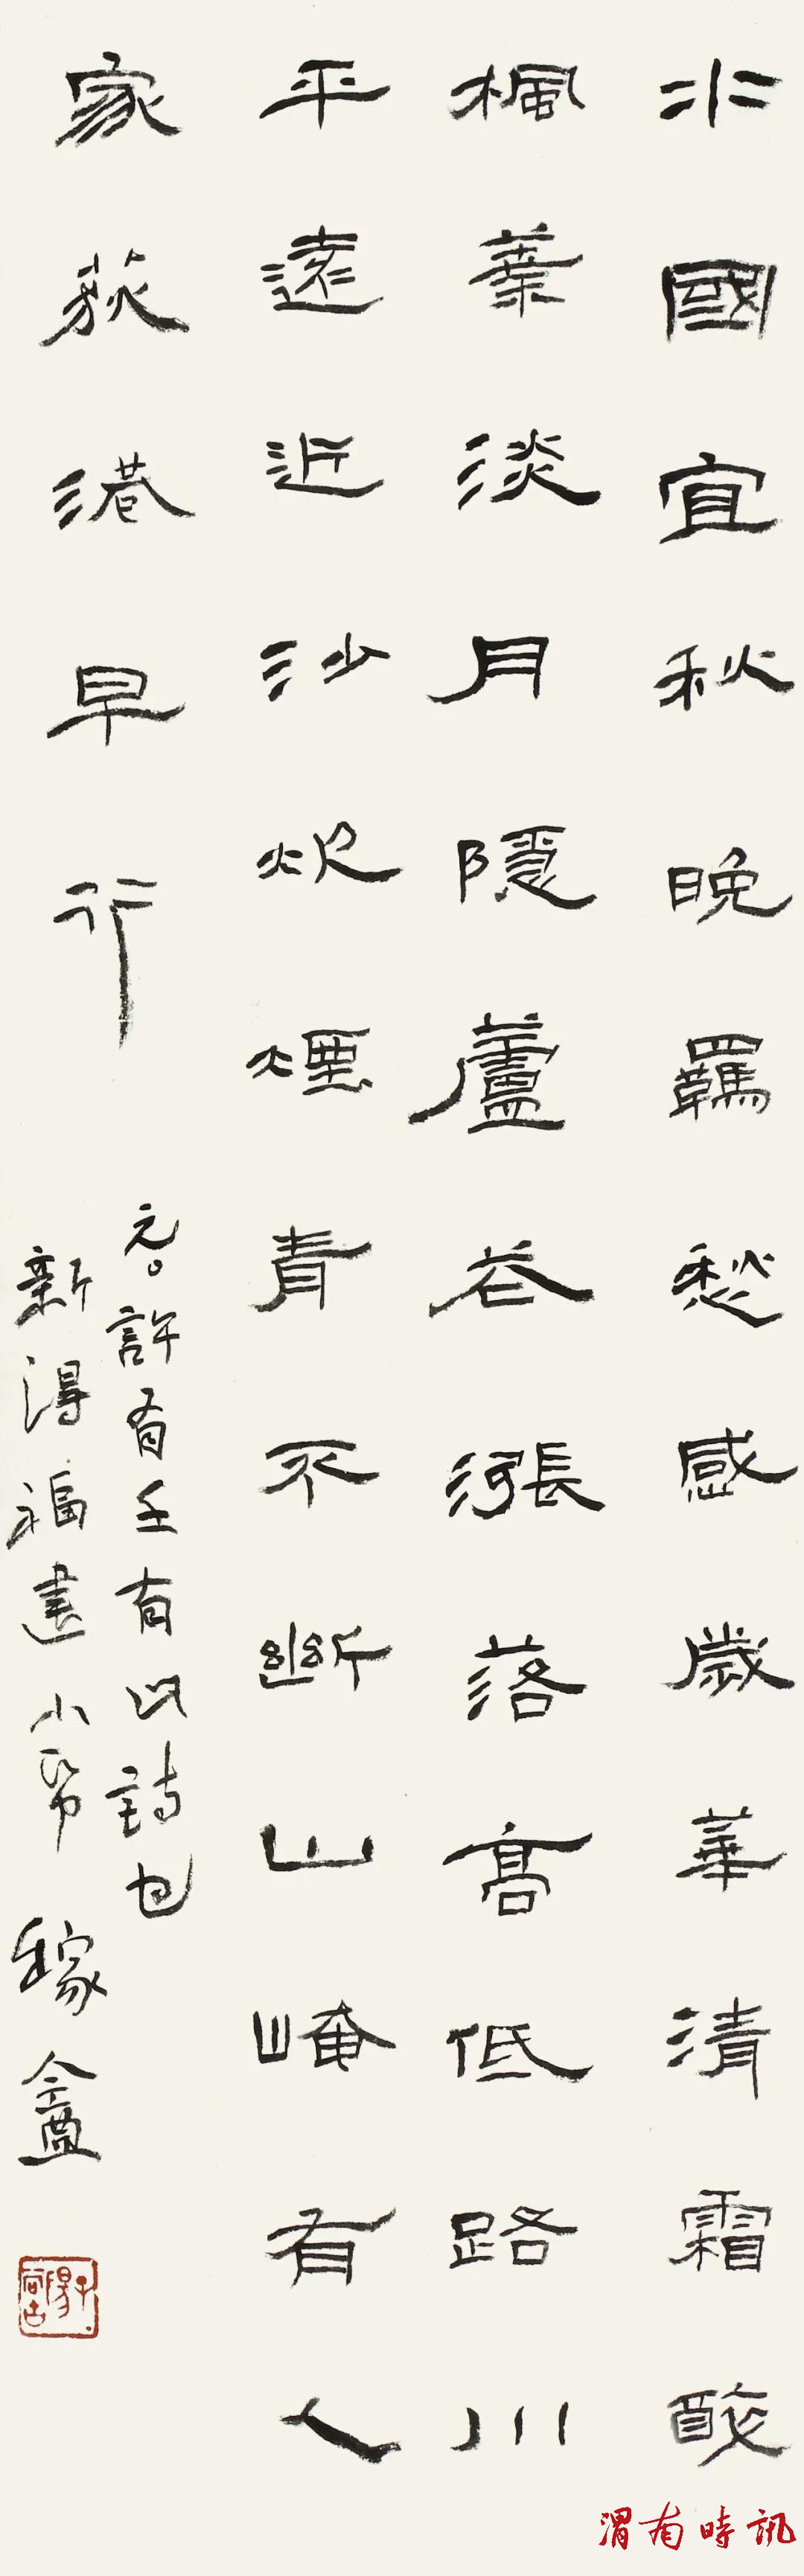 水國宜秋晚羈愁感歲華清霜酸
楓葉淡月隱蘆花漲落高低路川
平遠近沙炊煙青不斷山崦有人
家荻港早行
元。許有壬有此詩也
新得福建小帋 稼盦
渭南時訊